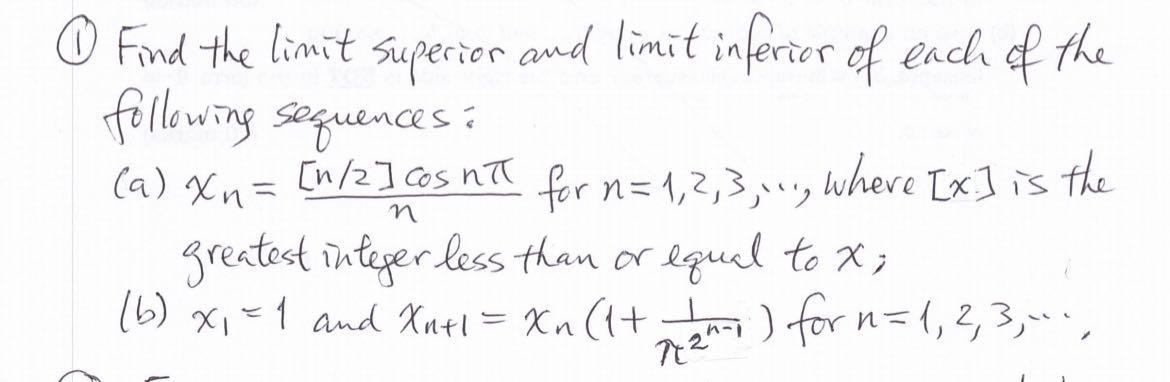 ① Find the limit superior and limit inferior of each of the
following sequences:
(a) xₙ = [n/2] cos nπ / n for n=1,2,3,..., where [x] is the
greatest integer less than or equal to x;
(b) x₁ = 1 and xₙ₊₁ = xₙ(1 + 1/π^(2^(n-1))) for n=1,2,3,....